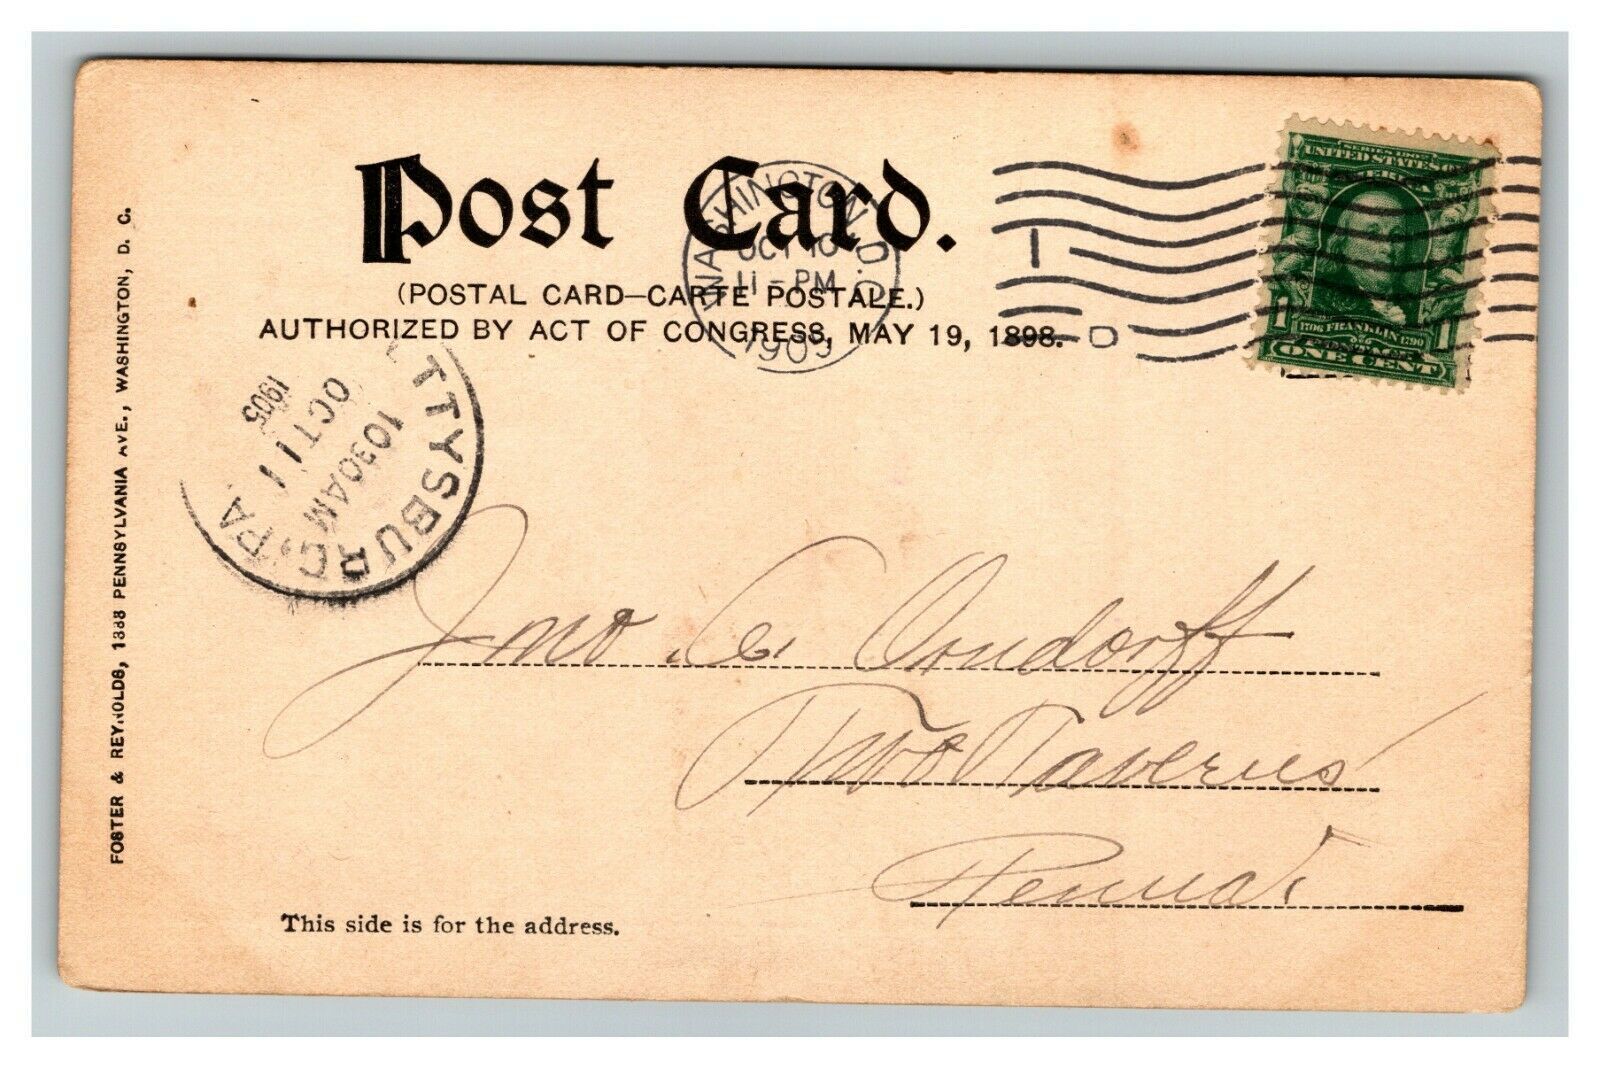 Post Card.
(POSTAL CARD—CARTE POSTALE.)
AUTHORIZED BY ACT OF CONGRESS, MAY 19, 1898.
WASHINGTON, D.C.
OCT 10
11 - PM
1905
1
D
SERIES 1902
UNITED STATES OF
AMERICA
1706 FRANKLIN 1790
1 1
ONE CENT
TTYSBURG, PA.
1030AM
OCT 11
1905
FOSTER & REYNOLDS, 1388 PENNSYLVANIA AVE., WASHINGTON, D. C.
Jno. C. Orndorff
Two Taverns
Penna.
This side is for the address.